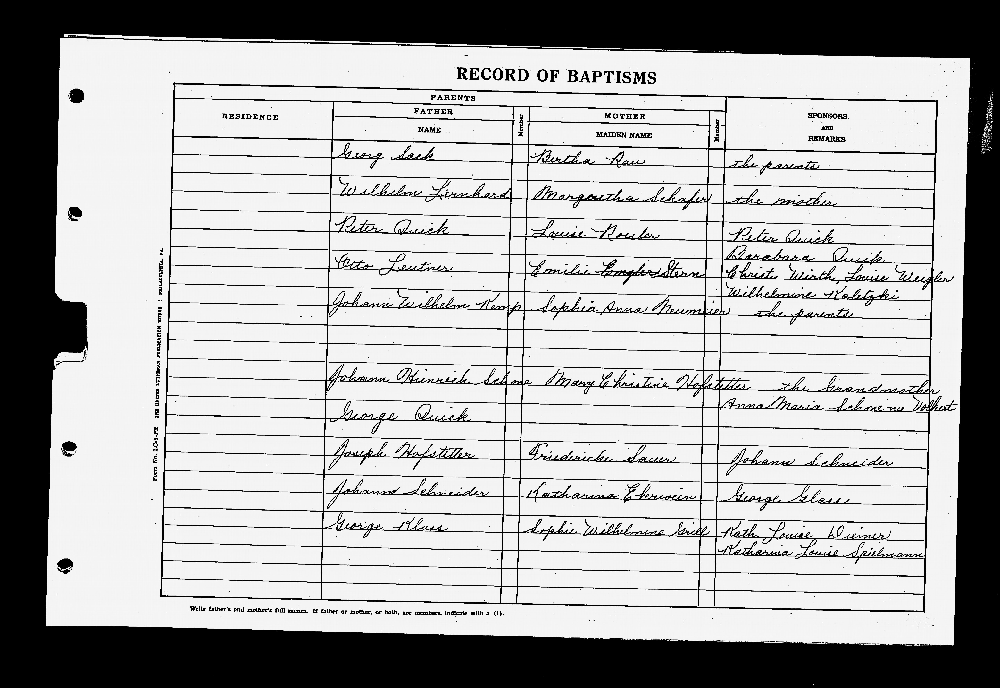 RECORD OF BAPTISMS
PARENTS
RESIDENCE
FATHER
MOTHER
SPONSORS
AND
REMARKS
NAME
Member
MAIDEN NAME
Member
Georg Sack Bertha Rau the parents
Wilhelm Lernhard Margaretha Schafer the mother
Peter Quick Louise Rouler Peter Quick
Barabara Quick
Otto Leutner Emilie Stern Christ. Wirth, Louise Weigler
Wilhelmine Koletzki
Johann Wilhelm Kemp Sophia Anna Neumeier the parents
Johann Hienrich Schone Mary Christine Hofstetter the Grandmother
Anna Maria Schmene Volkert
George Quick
Joseph Hofstetter Friedericke Sauer Johann Schneider
Johann Schneider Katharina Eberwein George Glass
George Klass Sophie Wilhelmine Grill Kath. Louise Diemer
Katharina Louise Spielmann
Write father's and mother's full names. If father or mother, or both, are members, indicate with a (1).